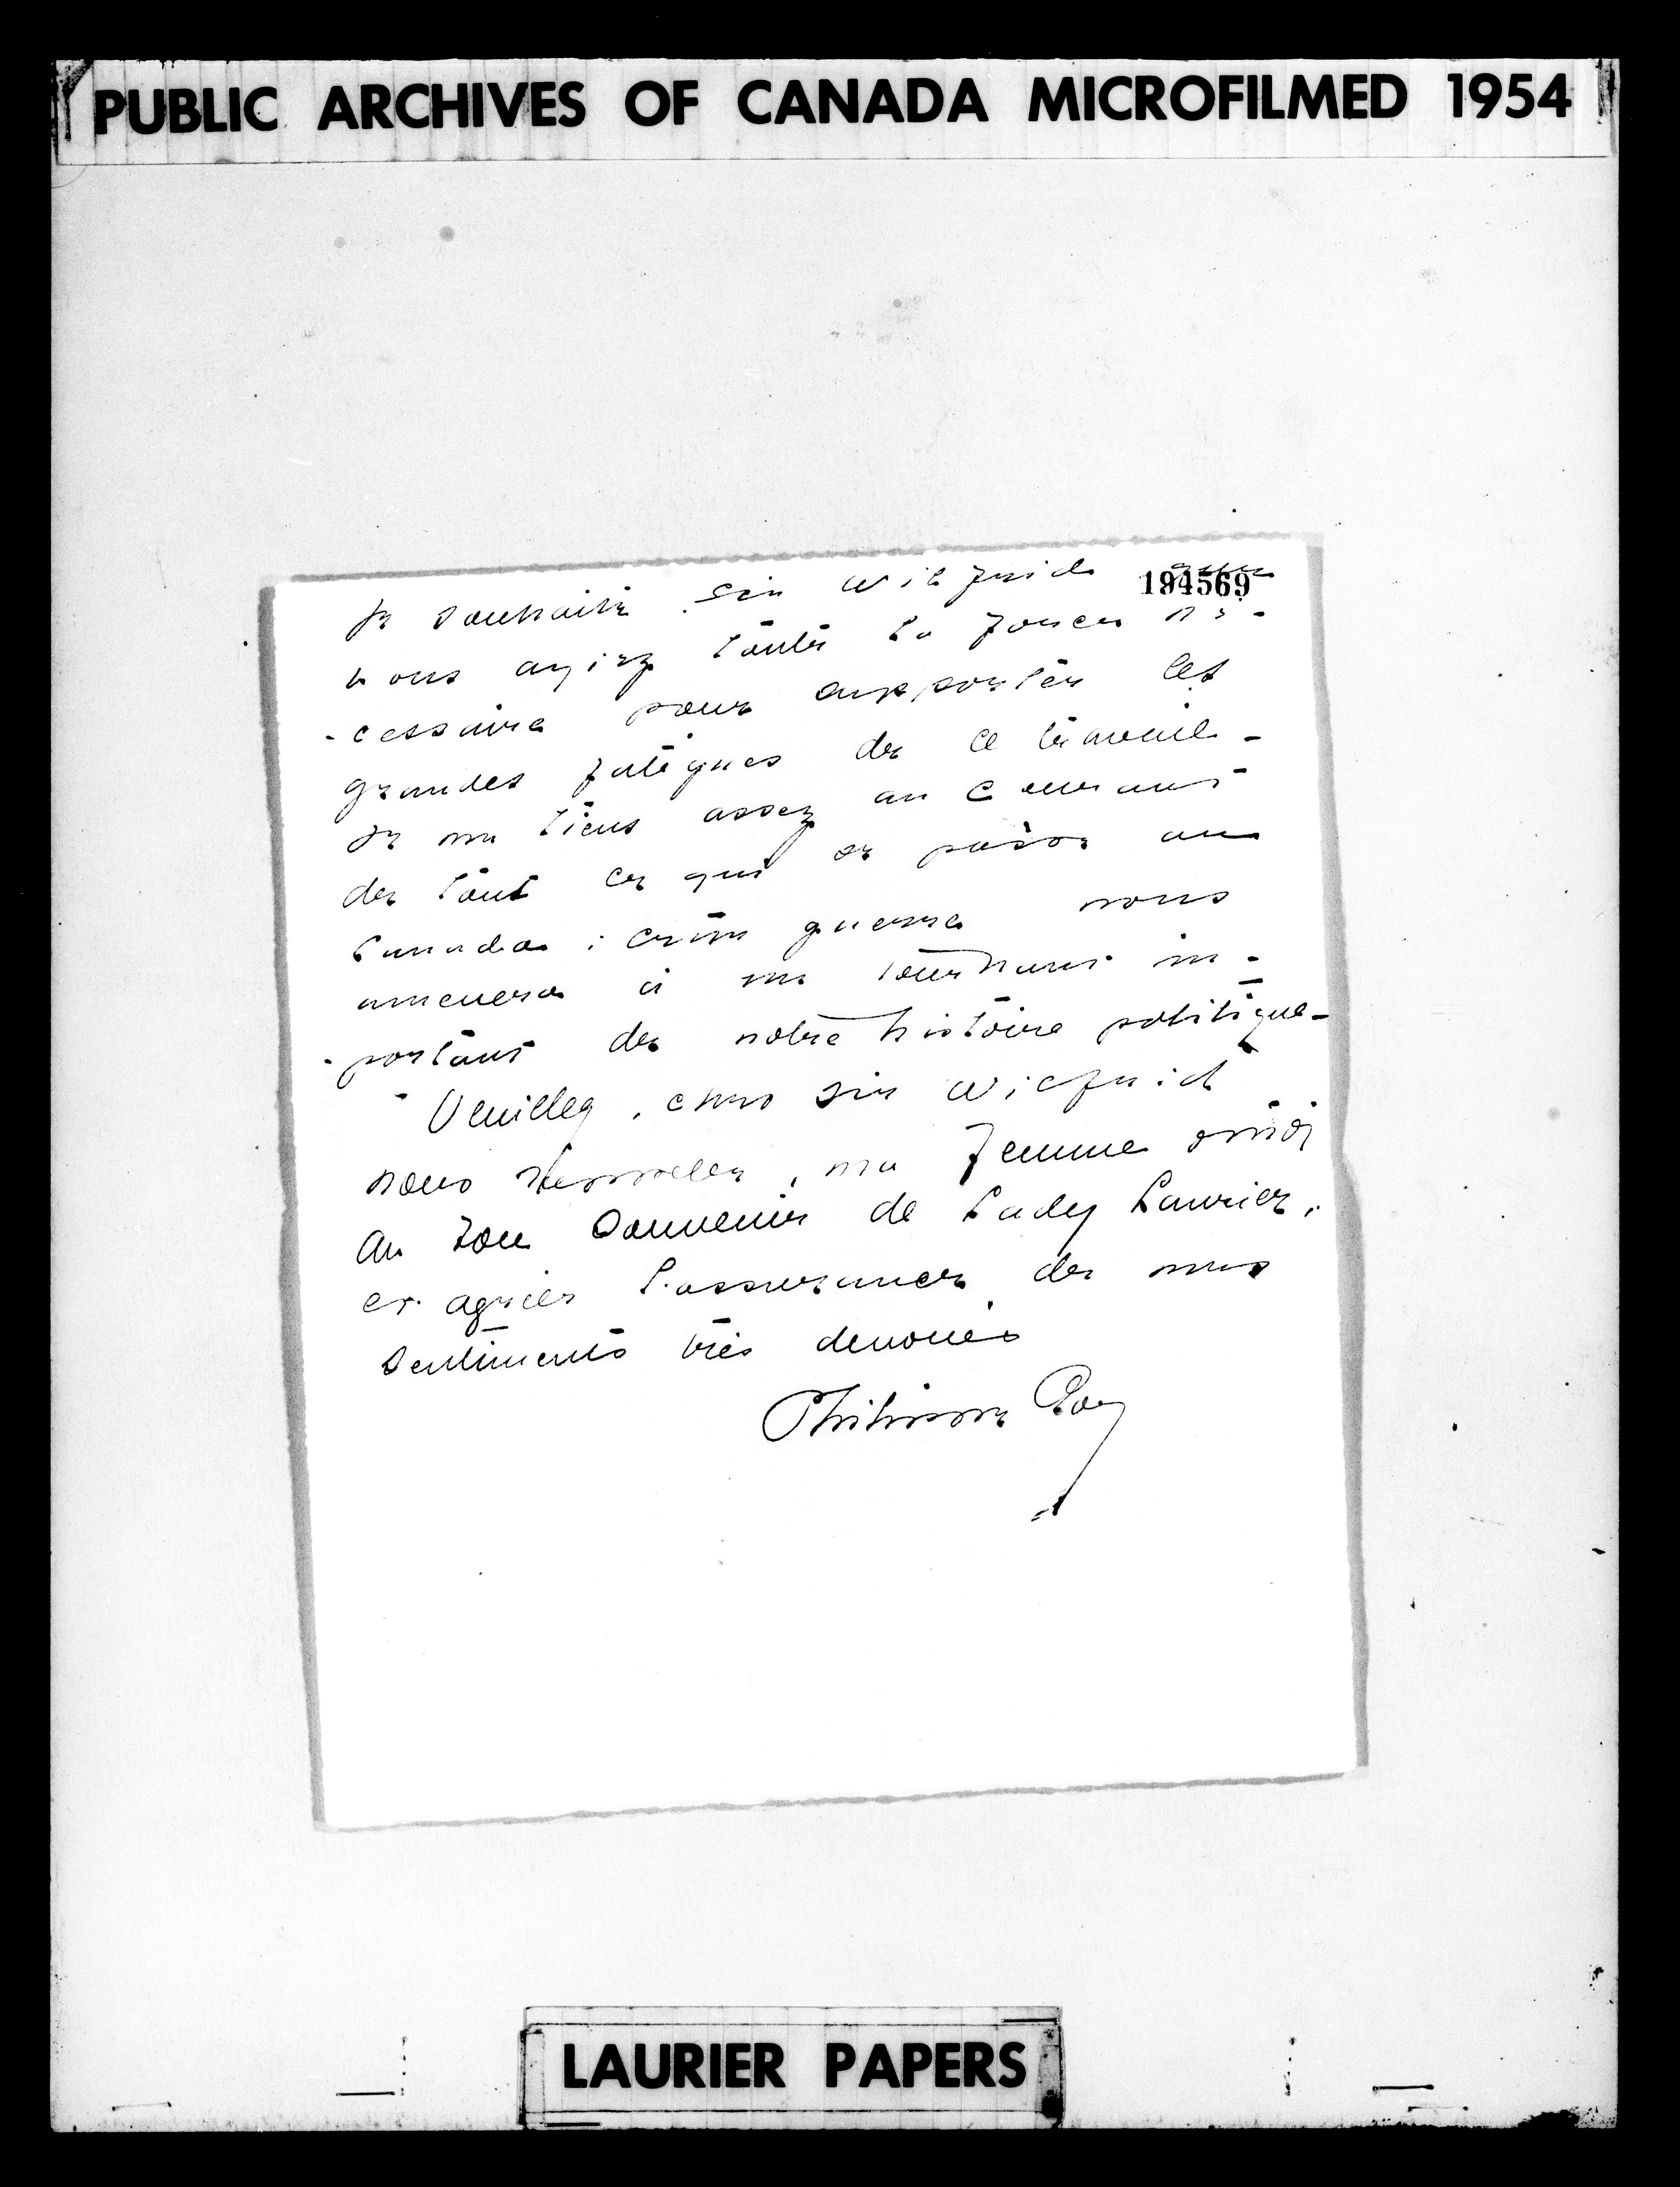 PUBLIC ARCHIVES OF CANADA MICROFILMED 1954
194569
Je souhaite Sir Wilfrid que
vous ayiez toute la force né-
-cessaire pour supporter les
grandes fatigues de ce travail-
Je me tiens assez au courant
de tout ce qui se passe au
Canada : cette guerre nous
amenera à un tournant im-
-portant de notre histoire politique-
Veuillez, cher Sir Wilfrid
nous rappeler, ma femme et moi
au bon souvenir de Lady Laurier,
et agréer l'assurance de mes
sentiments très dévoués
Philippe Roy
LAURIER PAPERS